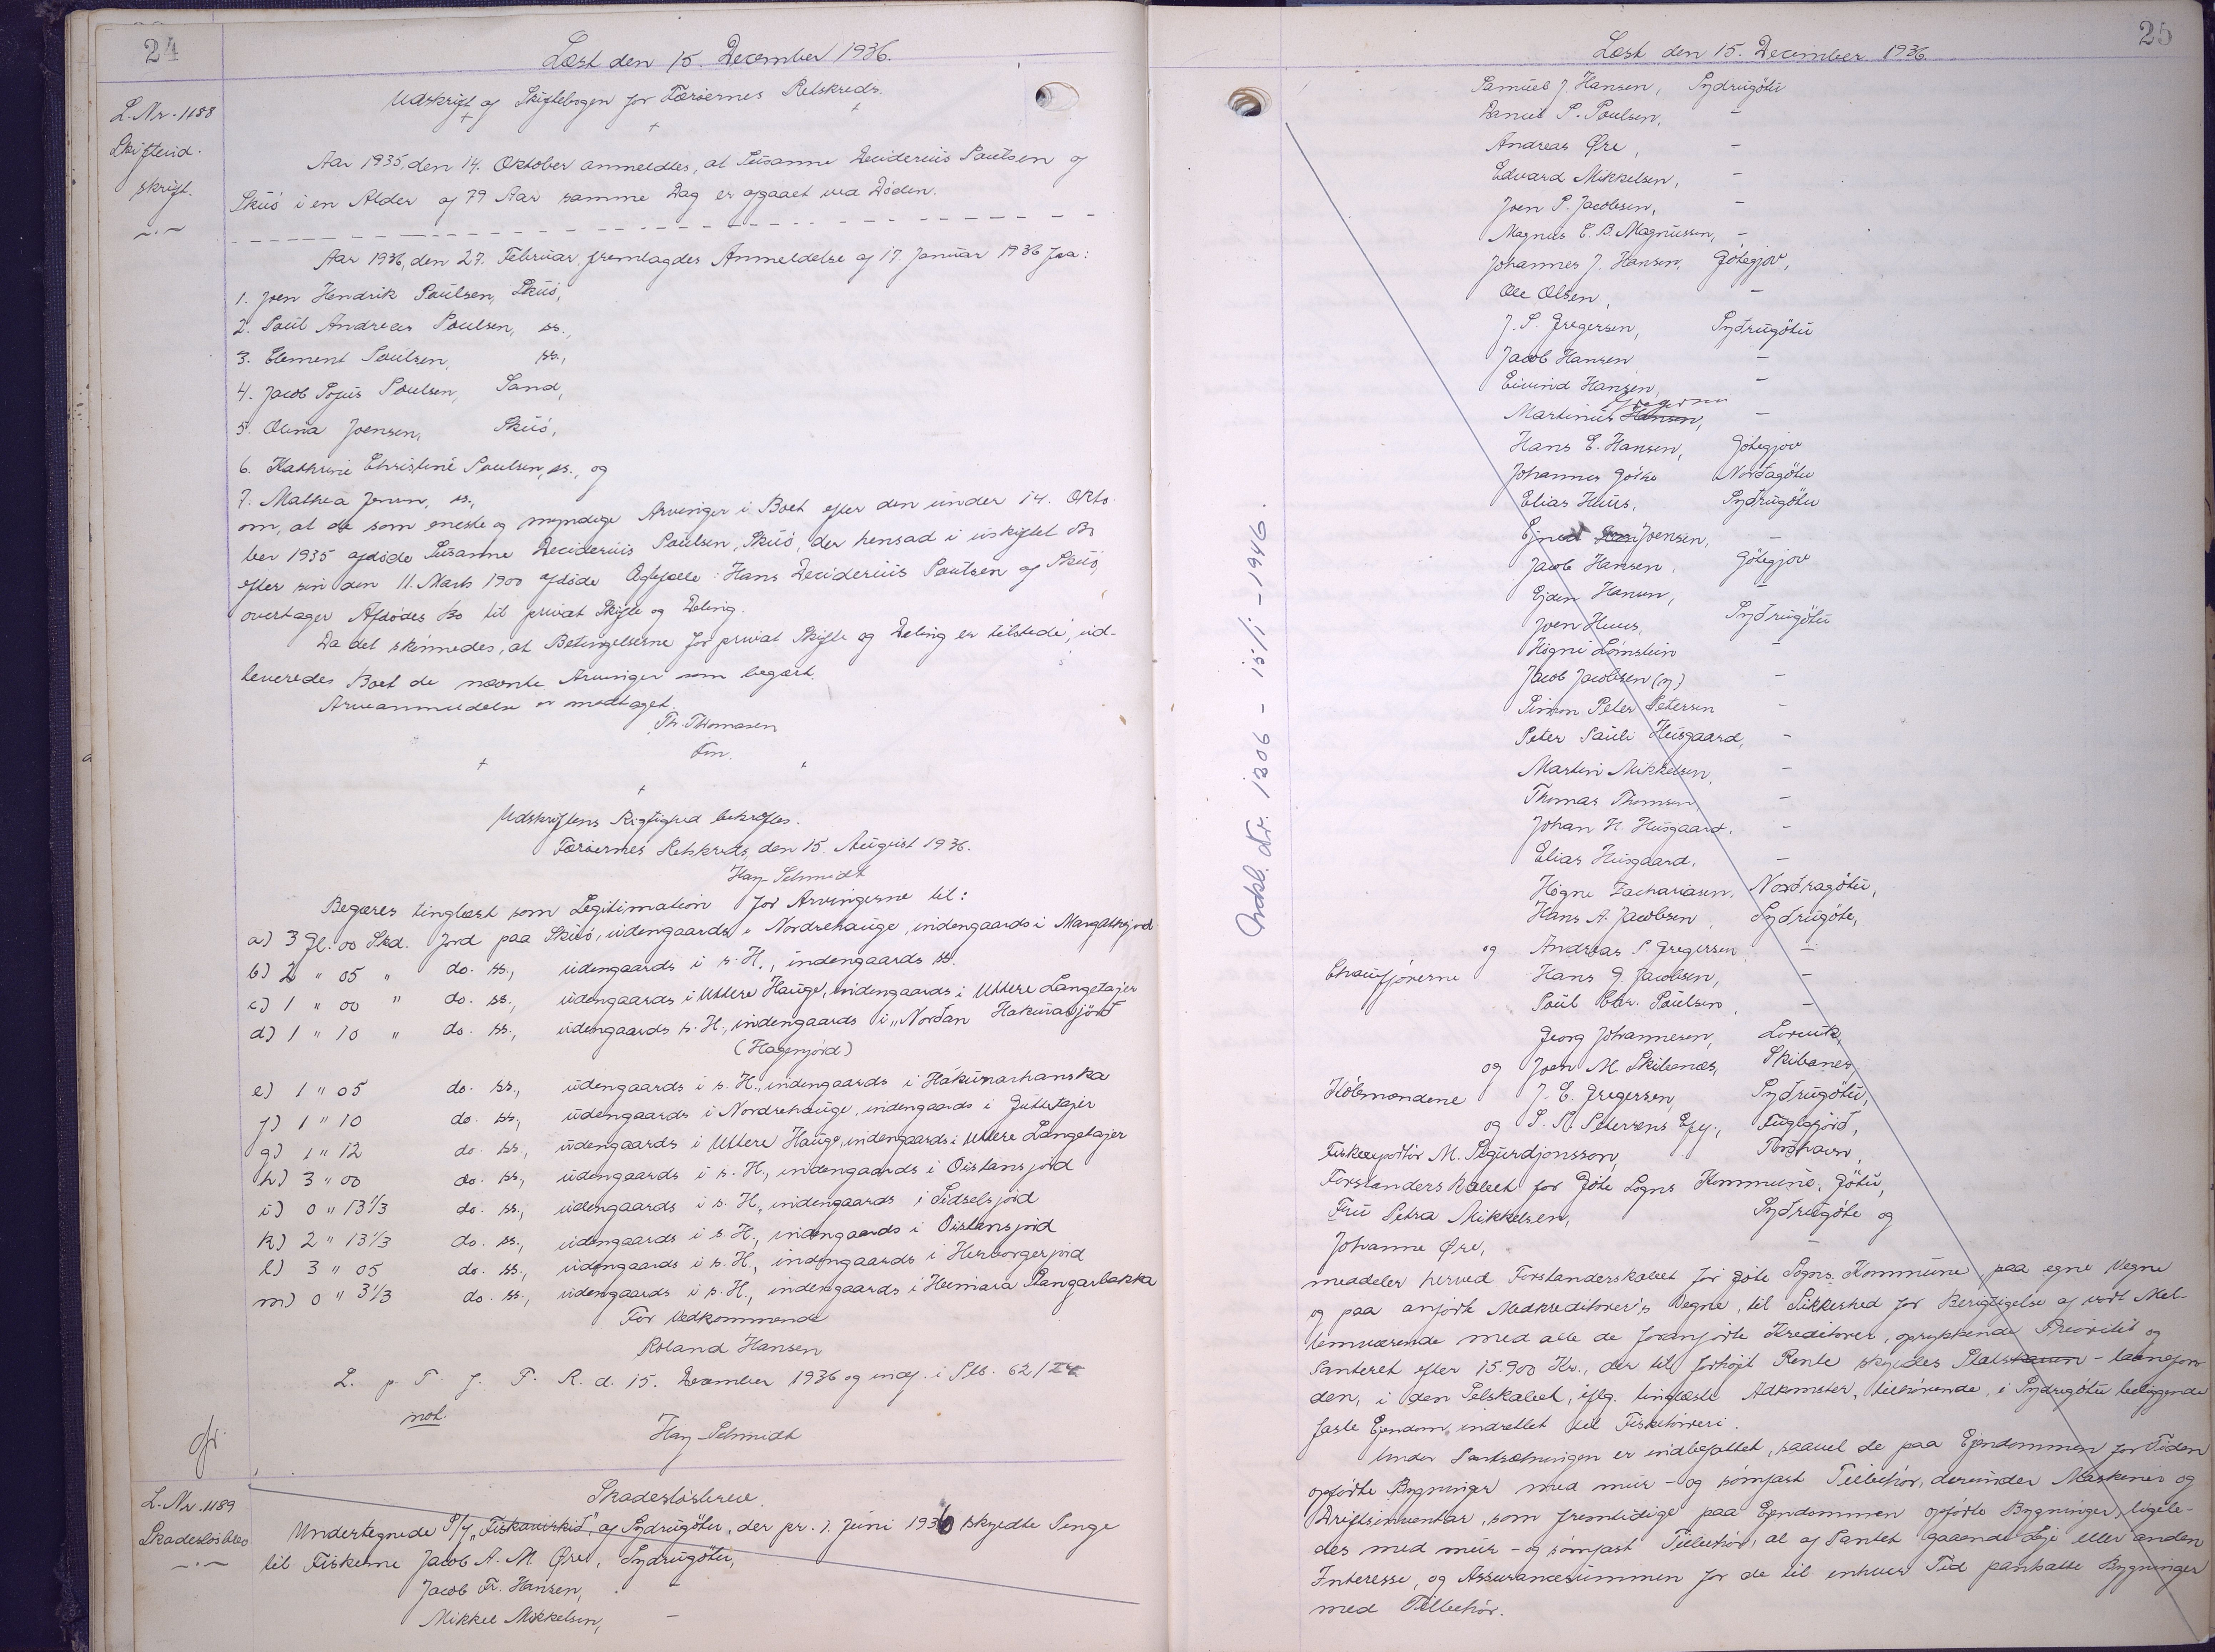 24
Læst den 15. December 1936.
L. Nr. 1188
Skifteud-
skrift.
Udskrift af Skiftebogen for Færøernes Retskreds.
Aar 1935, den 14. Oktober anmeldtes, at Susanne Deciderius Poulsen af
Skúó i en Alder af 79 Aar samme Dag er afgaaet ved Døden.
Aar 1936, den 27. Februar fremlagdes Anmeldelse af 17. Januar 1936 fra:
1. Joen Hendrik Poulsen, Skúó,
2. Poul Andreas Poulsen, ss.,
3. Clement Poulsen, ss.,
4. Jacob Sofus Poulsen, Sand,
5. Olina Joensen, Skúó,
6. Kathrine Christine Poulsen, ss., og
7. Mathea Jensen, ss.,
om, at de som eneste og myndige Arvinger i Boet efter den under 14. Okto-
ber 1935 afdøde Susanne Deciderius Poulsen, Skúó, der hensad i uskiftet Bo
efter sin den 11. Marts 1900 afdøde Ægtefælle: Hans Deciderius Poulsen af Skúó,
overtager Afdødes Bo til privat Skifte og Deling.
Da det skønnedes, at Betingelserne for privat Skifte og Deling er tilstede, ud-
leveredes Boet de nævnte Arvinger som begært.
Arveanmeldelse er modtaget.
Th. Thomasen
Fm.
Udskriftens Rigtighed bekræftes.
Færøernes Retskreds, den 15. August 1936.
Hay-Schmidt
Begæres tinglæst som Legitimation for Arvingerne til:
a) 3 Gl. 00 Skd. Jord paa Skúó, udengaards i Nordrehauge, indengaards i Margathsjord
b) 2 " 05 " do. ss., udengaards i s. H., indengaards ss.
c) 1 " 00 " do. ss., udengaards i Uttere Hauge, indengaards i Uttere Langetajer
d) 1 " 10 " do. ss., udengaards s. H., indengaards i "Norðan Hakunasjörð
(Hagenjörd)
e) 1 " 05 do. ss., udengaards i s. H., indengaards i Hákunarhanska
f) 1 " 10 do. ss., udengaards i Nordrehauge, indengaards i Guttetajer
g) 1 " 12 do. ss., udengaards i Uttere Hauge, indengaards i Uttere Langetajer
h) 3 " 00 do. ss., udengaards i s. H., indengaards i Oistansjörd
i) 0 " 13 1/3 do. ss., udengaards i s. H., indengaards i Sidselsjörd
k) 2 " 13 1/3 do. ss., udengaards i s. H., indengaards i Oistansjord
l) 3 " 05 do. ss., udengaards i s. H., indengaards i Herborgerjord
m) 0 " 3 1/3 do. ss., udengaards i s. H., indengaards i Heimara Stangarbakka
For Vedkommende
Roland Hansen
L. p. T. f. F. R. d. 15. December 1936 og indf. i Pb. 62/
not.
Hay-Schmidt
L. Nr. 1189
Skadesløsbrev
Skadesløsbrev.
Undertegnede P/f "Fiskavirkið", af Syðrugøtu, der pr. 1. Juni 1936 skyldte Penge
til Fiskerne Jacob A. M. Øre, Syðrugøtu,
Jacob Fr. Hansen, -
Mikkel Mikkelsen, -
25
Læst den 15. December 1936.
Samuel J. Hansen, Syðrugøtu
Daniel P. Poulsen, -
Andreas Øre, -
Edvard Mikkelsen, -
Joen P. Jacobsen, -
Magnus E. B. Magnussen, -
Johannes J. Hansen, Gøtegjov,
Ole Olsen, -
J. P. Gregersen, Syðrugøtu
Jacob Hansen -
Eivind Hansen, -
Gregersen
Martinus Hansen, -
Hans E. Hansen, Gøtegjov
Johannes Gøtke Norðagøtu
Elias Huus, Syðrugøtu
Joensen, -
Jacob Hansen, Gøtegjov
Ejden Hansen, -
Joen Huus, Syðrugøtu
Høgni Lómstein -
Jacob Jacobsen (y) -
Simon Peter Petersen -
Peter Pauli Húsgaard, -
Martin Mikkelsen, -
Thomas Thomsen, -
Johan H. Húsgaard, -
Elias Húsgaard, -
Høgne Zachariasen, Norðragøtu,
Hans A. Jacobsen, Syðrugøte,
og Andreas P. Gregersen -
Chaufførerne Hans G. Jacobsen, -
Poul Chr. Poulsen, -
Georg Johannesen, Lorvik,
og Joen M. Skibenæs, Skibanes,
Købmændene J. E. Gregersen, Syðrugøtu,
og S. P. Petersens Eftf., Fuglefjord,
Fiskeexportør M. Sigurdjonsson, Torshavn,
Forstanderskabet for Gøte Sogns Kommune, Gøtu,
Fru Petra Mikkelsen, Syðrugøte og
Johanne Øre, -
meddeler herved Forstanderskabet for Gøte Sogns Kommune, paa egne Vegne
og paa anførte Medkreditorer's Vegne, til Sikkerhed for Berigtigelse af vort Mel-
lemværende med alle de foranførte Kreditorer, oprykkende Prioritet og
Panteret efter 15.900 Kr., der til forhøjt Rente skyldes Stats - laanefon-
den, i den Selskabet, iflg. tinglæste Adkomster, tilhørende, i Syðrugøtu beliggende
faste Ejendom, indrettet til Fisketørreri.
Under Pantsætningen er indbefattet, saavel de paa Ejendommen for Tiden
opførte Bygninger med mur- og sømfast Tilbehør, derunder Maskiner og
Driftsinventar, som fremtidige paa Ejendommen opførte Bygninger, ligele-
des med mur- og sømfast Tilbehør, al af Pantet gaaende Leje eller anden
Interesse, og Assurancesummen for de til enhver Tid pantsatte Bygninger
med Tilbehør.
Nr. 1306 - 15/1 - 1946.